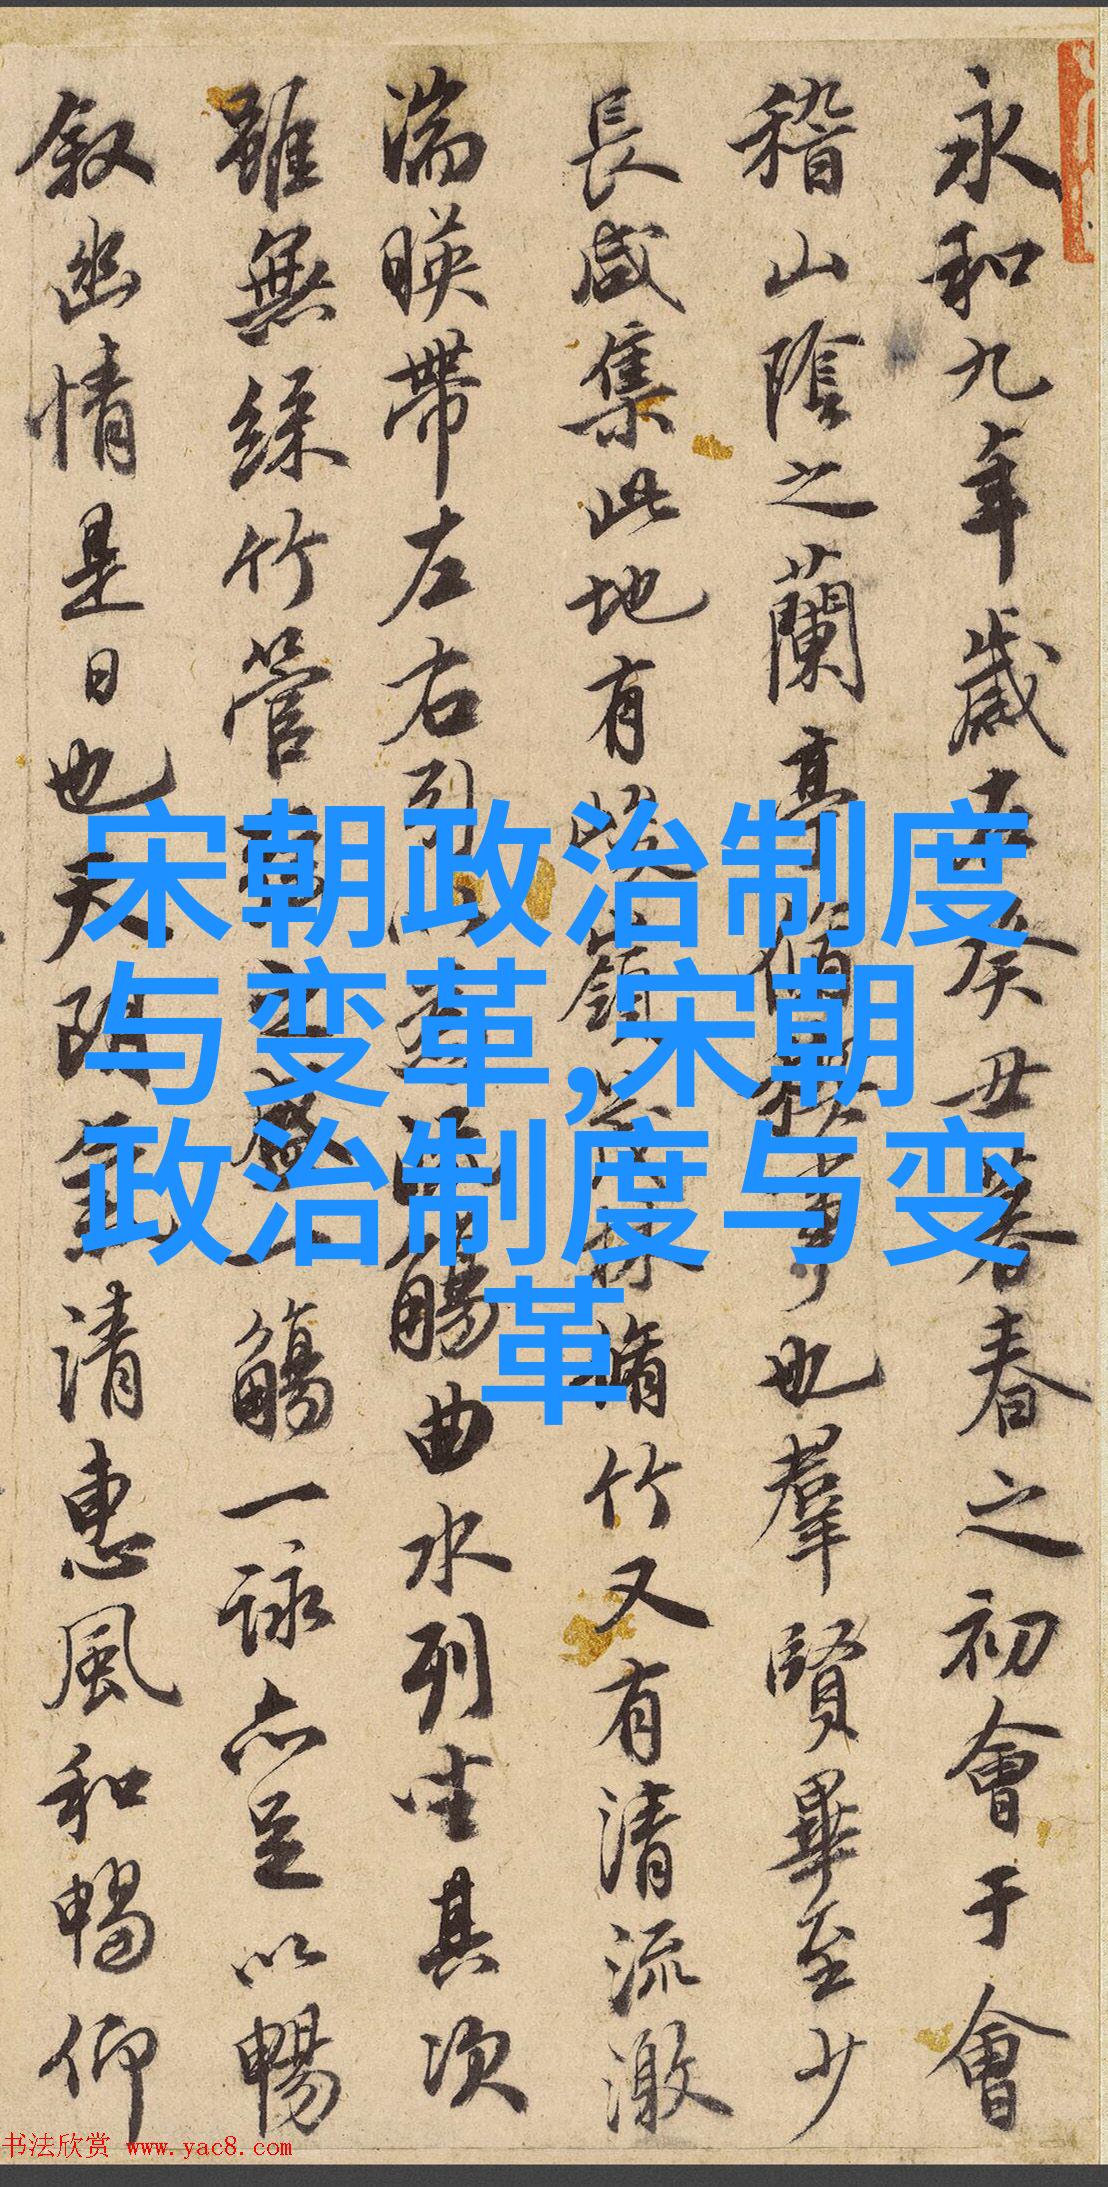 永和九年歲在癸丑暮春之初會于會
稽山陰之蘭亭脩稧事也羣賢畢至少
長咸集此地有峻嶺茂林脩竹又有清流激
湍暎帶左右引以為流觴曲水列坐其次
雖無絲竹管弦之盛一觴一詠亦足以暢
叙幽情是日也天朗氣清惠風和暢仰
宋朝政治制度
与变革,宋朝
政治制度与变
革
书法欣赏 www.yac8.com